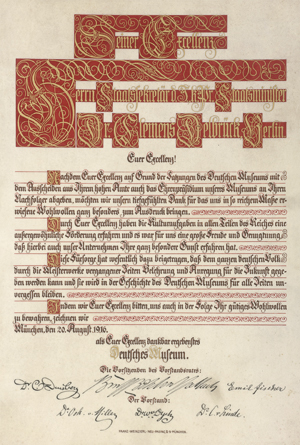 Seiner Exzellenz
Herrn Staatssekretär a. D. Staatsminister
Dr. Clemens Delbrück Berlin
Euer Exzellenz!
Nachdem Euer Exzellenz auf Grund der Satzungen des Deutschen Museums mit
dem Ausscheiden aus Ihrem hohen Amte auch das Ehrenpräsidium unseres Museums an Ihren
Nachfolger abgeben, möchten wir unsern tiefgefühlten Dank für das uns in so reichem Maße er-
wiesene Wohlwollen ganz besonders zum Ausdruck bringen.
Durch Euer Exzellenz haben die Kulturaufgaben in allen Teilen des Reiches eine
außergewöhnliche Förderung erfahren und es war für uns eine große Freude und Genugtuung
daß hierbei auch unser Unternehmen Ihre ganz besondere Gunst erfahren hat.
Diese Fürsorge hat wesentlich dazu beigetragen, daß dem ganzen deutschen Volk
durch die Meisterwerke vergangener Zeiten Belehrung und Anregung für die Zukunft gege-
ben werden kann und sie wird in der Geschichte des Deutschen Museums für alle Zeiten un-
vergessen bleiben.
Indem wir Euer Exzellenz bitten, uns auch in der Folge Ihr gütiges Wohlwollen
zu bewahren, zeichnen wir
München, den 20. August 1916.
als Euer Exzellenz dankbar ergebenstes
Deutsches Museum.
Die Vorsitzenden des Vorstandsrates:
Emil Fischer
Der Vorstand:
Dr. Osk. v. Miller Dr. C. v. Linde